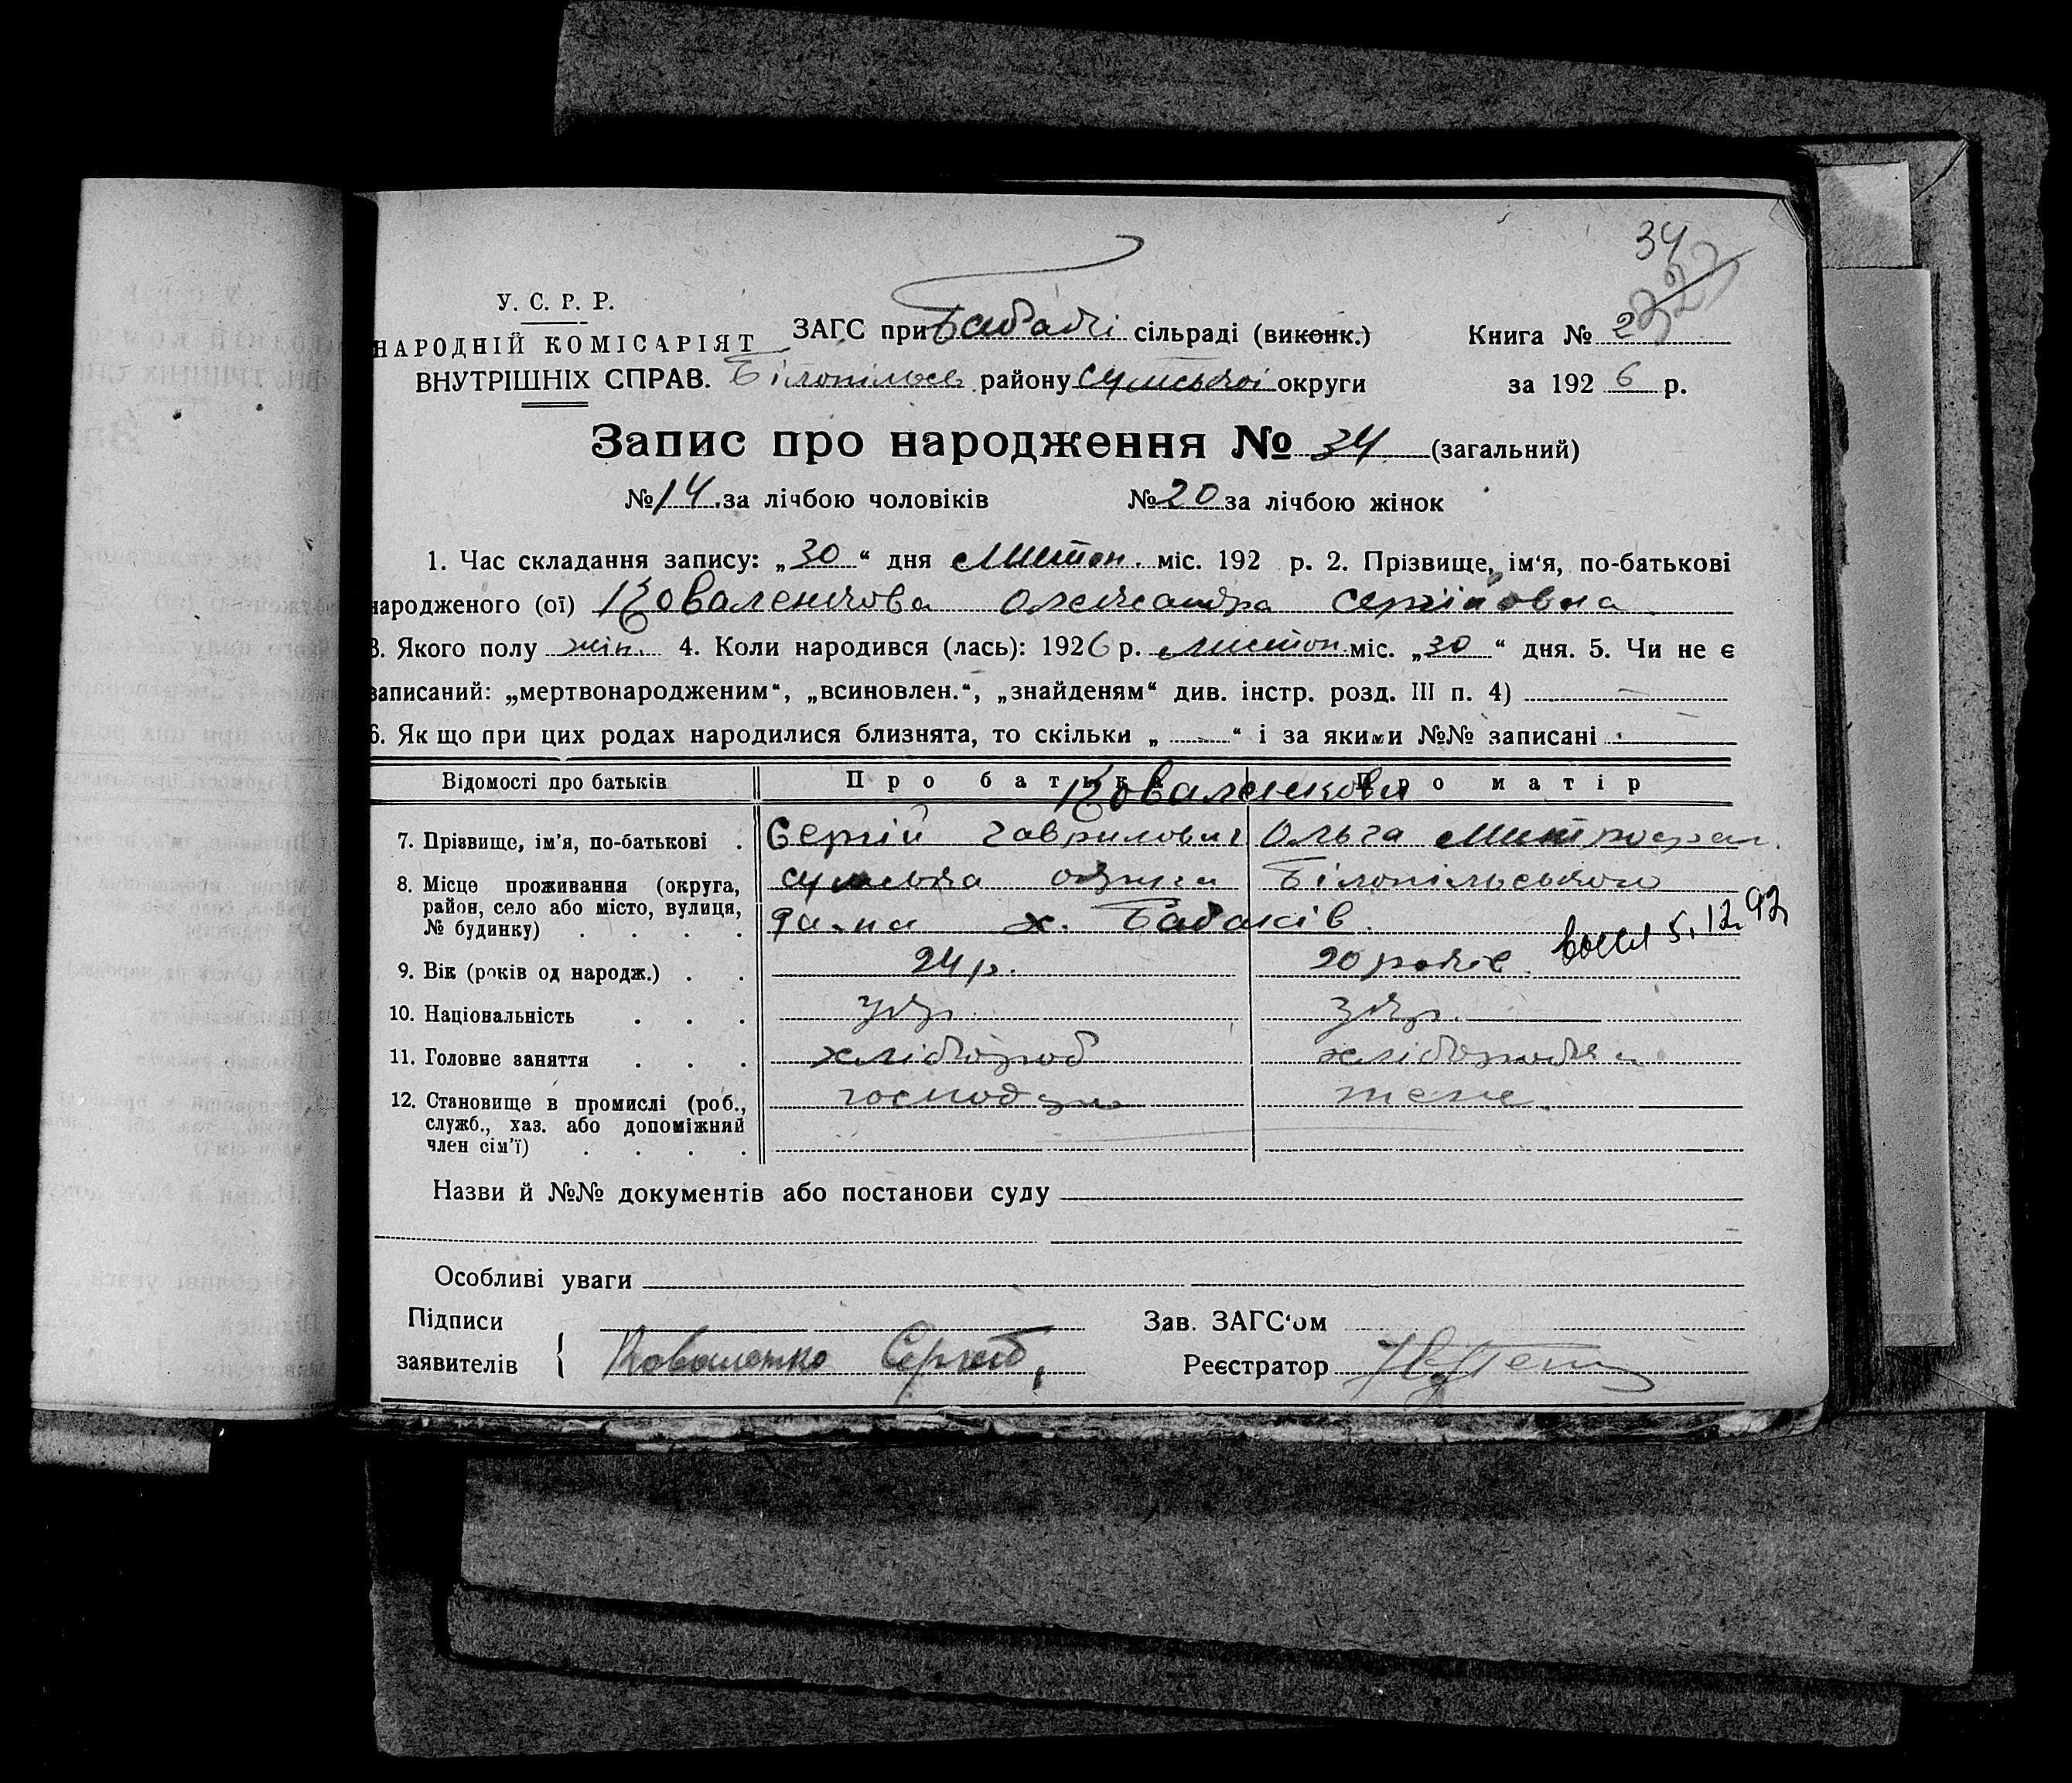 34
327
У. С. Р. Р.
НАРОДНІЙ КОМІСАРІЯТ
ВНУТРІШНІХ СПРАВ.
ЗАГС при сільраді (виконк.)
Білопільськ. району Сумської округи
Книга № 2
за 1926 р.
Запис про народження № 34 (загальний)
№ 14 за лічбою чоловіків № 20 за лічбою жінок
1. Час складання запису: „30“ дня Листоп. міс. 192 р. 2. Прізвище, ім‘я, по-батькові
народженого (ої) Коваленкова Олександра Сергіївна
3. Якого полу жін. 4. Коли народився (лась): 1926 р. листоп. міс. „30“ дня. 5. Чи не є
записаний: „мертвонародженим“, „всиновлен.“, „знайденям“ див. інстр. розд. III п. 4) —
6. Як що при цих родах народилися близнята, то скільки „ “ і за якими №№ записані
Відомості про батьків Про батька Про матір
Коваленкови
7. Прізвище, ім'я, по-батькові . Сергій Гаврилович Ольга Митрофан.
8. Місце проживання (округа, район, село або місто, вулиця, № будинку) . . . . Сумська округа Білопільського
района х. Бабаків.
5. 12 92
9. Вік (років од народж.) . . 24 р. 20 років.
10. Національність . . . укр. укр.
11. Головне заняття . . . хлібороб хліборобка
12. Становище в промислі (роб., служб., хаз. або допоміжний член сім'ї) . . . . господар жена.
Назви й №№ документів або постанови суду
Особливі уваги
Підписи
заявителів { Коваленко Сергей
Зав. ЗАГС‘ом
Реєстратор